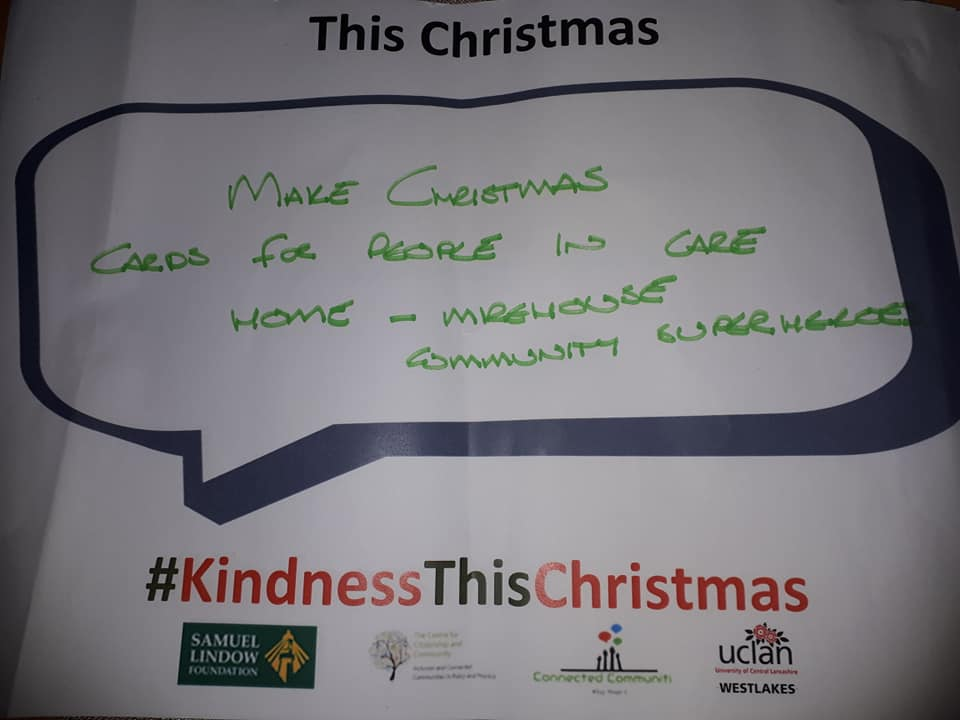 This Christmas
MAKE CHRISTMAS
CARDS FOR PEOPLE IN CARE
HOME - MIREHOUSE
COMMUNITY SUPERHEROES
#KindnessThisChristmas
SAMUEL
LINDOW
FOUNDATION
The Centre for
Citizenship and
Community
Inclusive and Connected
Communities in Policy and Practice
Connected Communiti
uclan
University of Central Lancashire
WESTLAKES